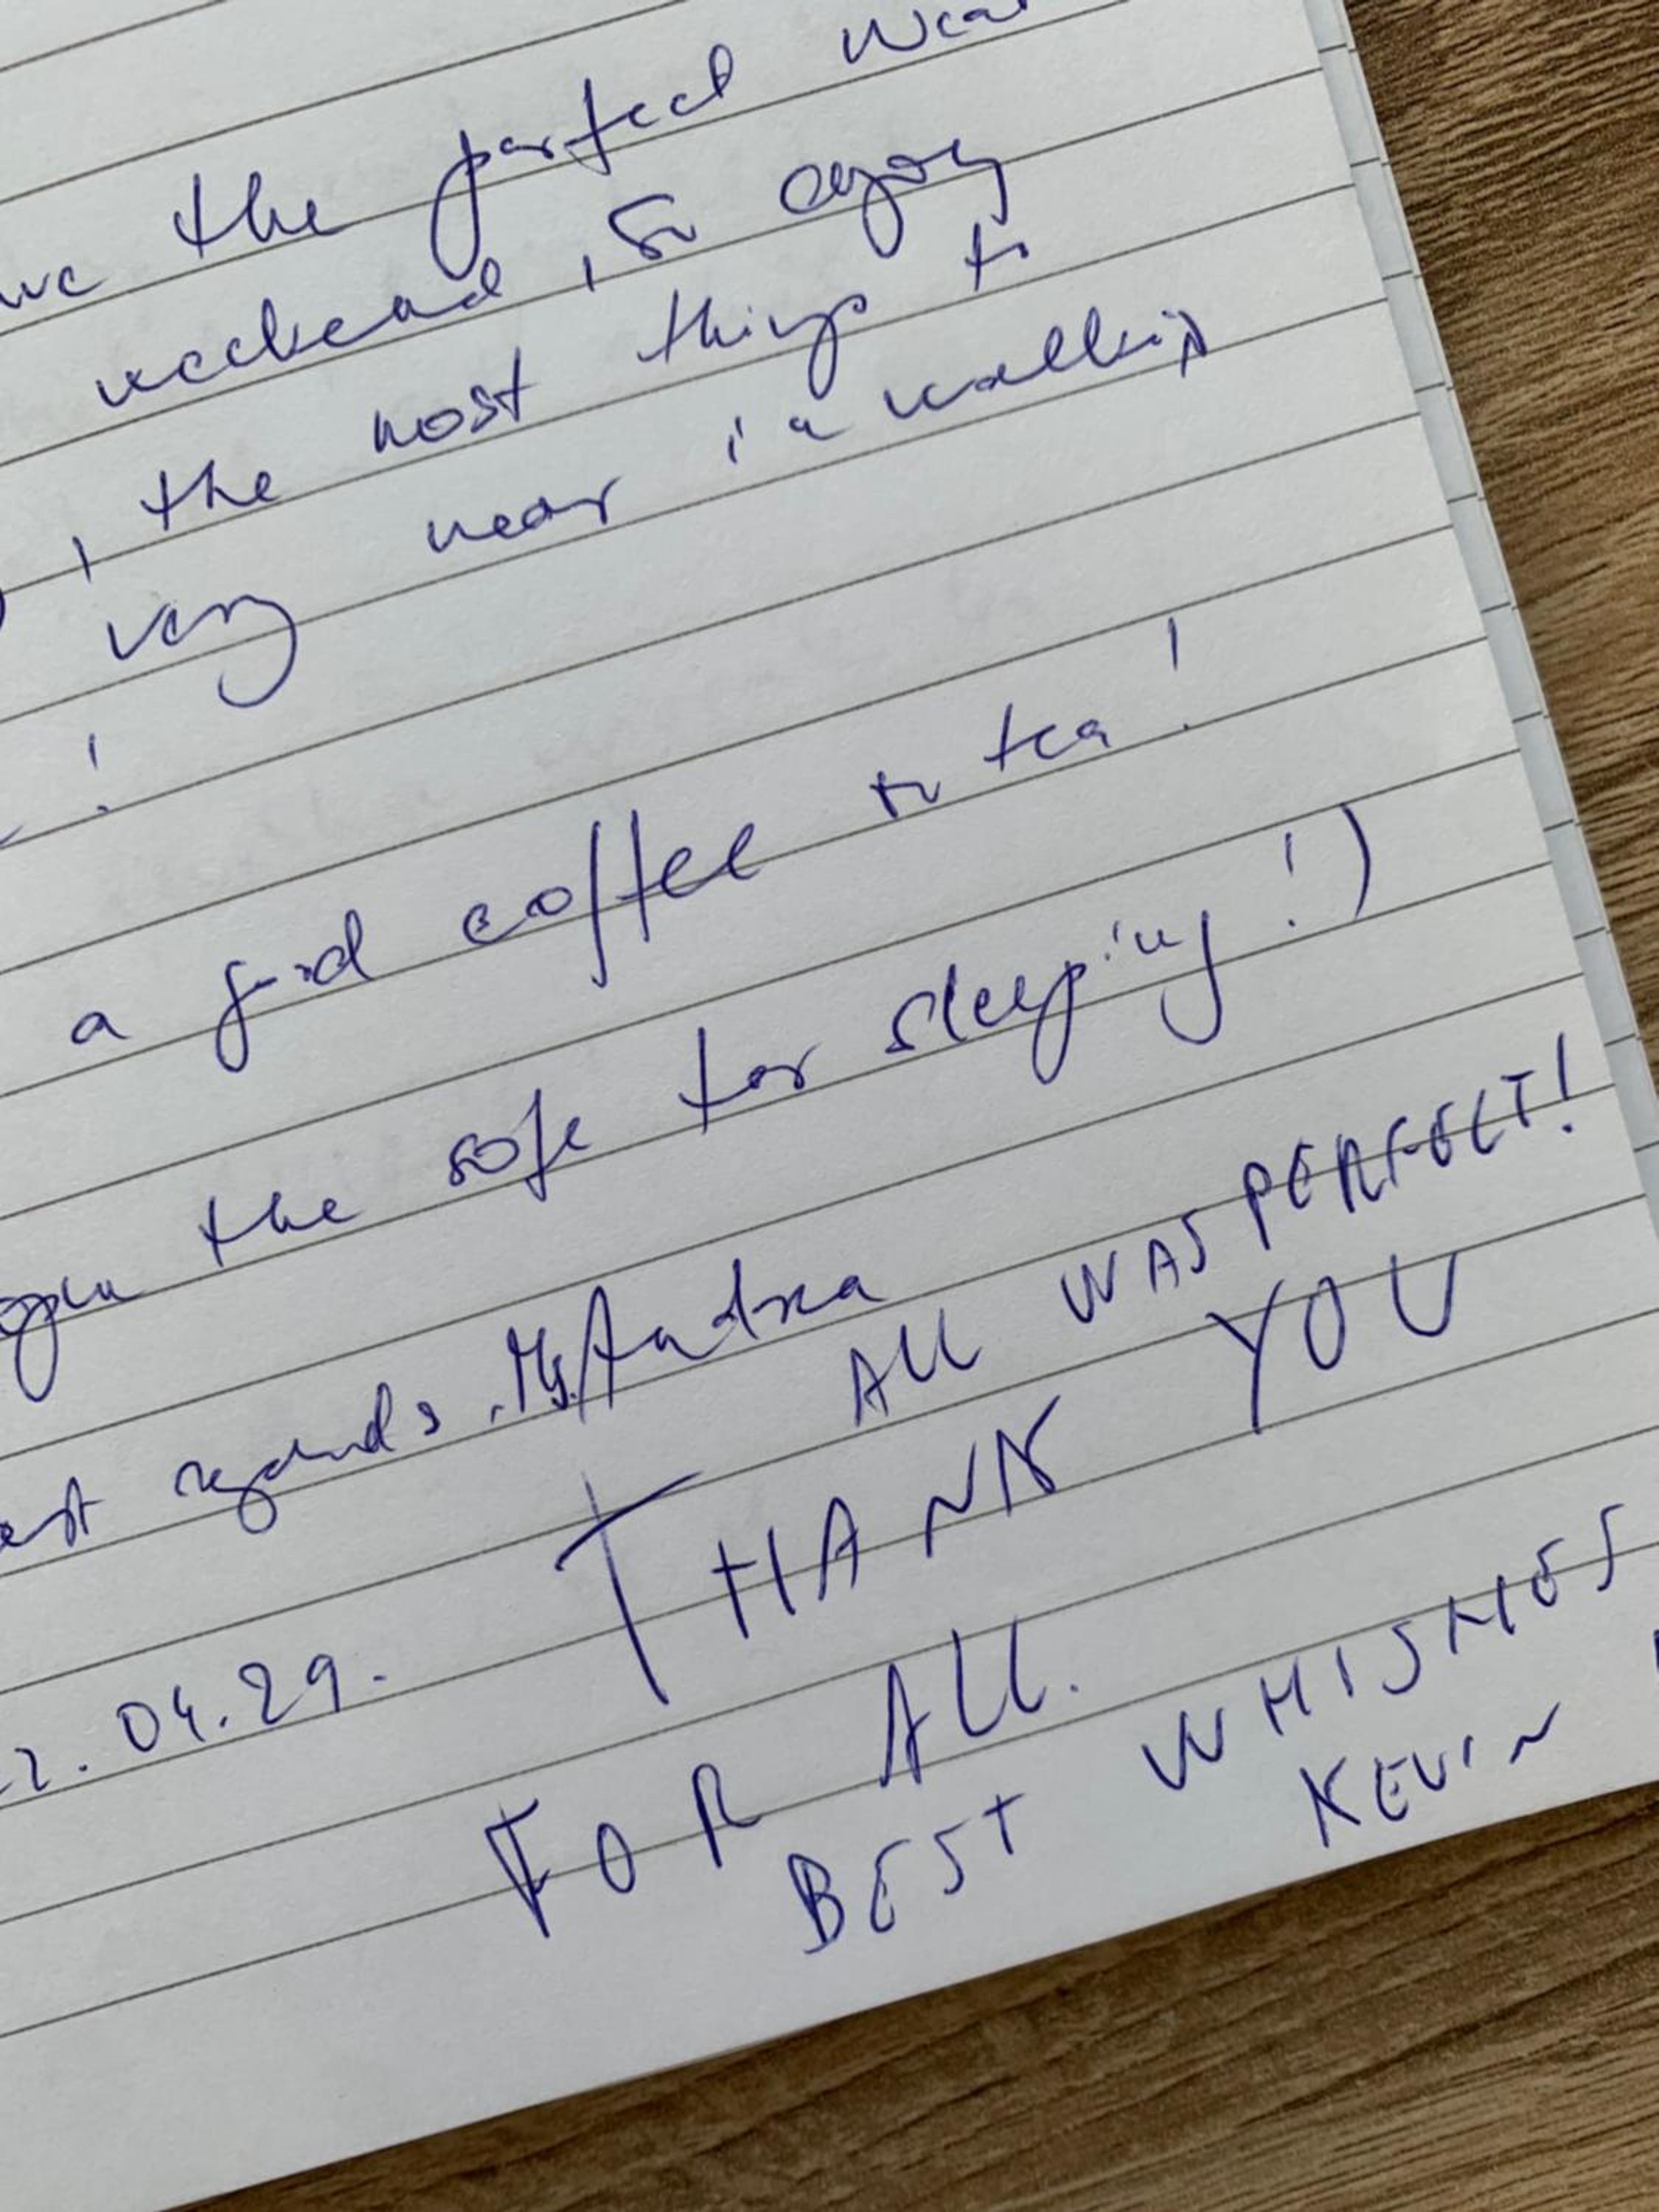 the perfect
weekend, so enjoy
, the most things to
very near in a walking
!
a good coffee or tea!
open the sofa for sleeping!)
est regards, Ms. Andrea
ALL WAS PERFECT!
THANK YOU
2. 04.29.
FOR ALL.
BEST WHISHES
KEVIN